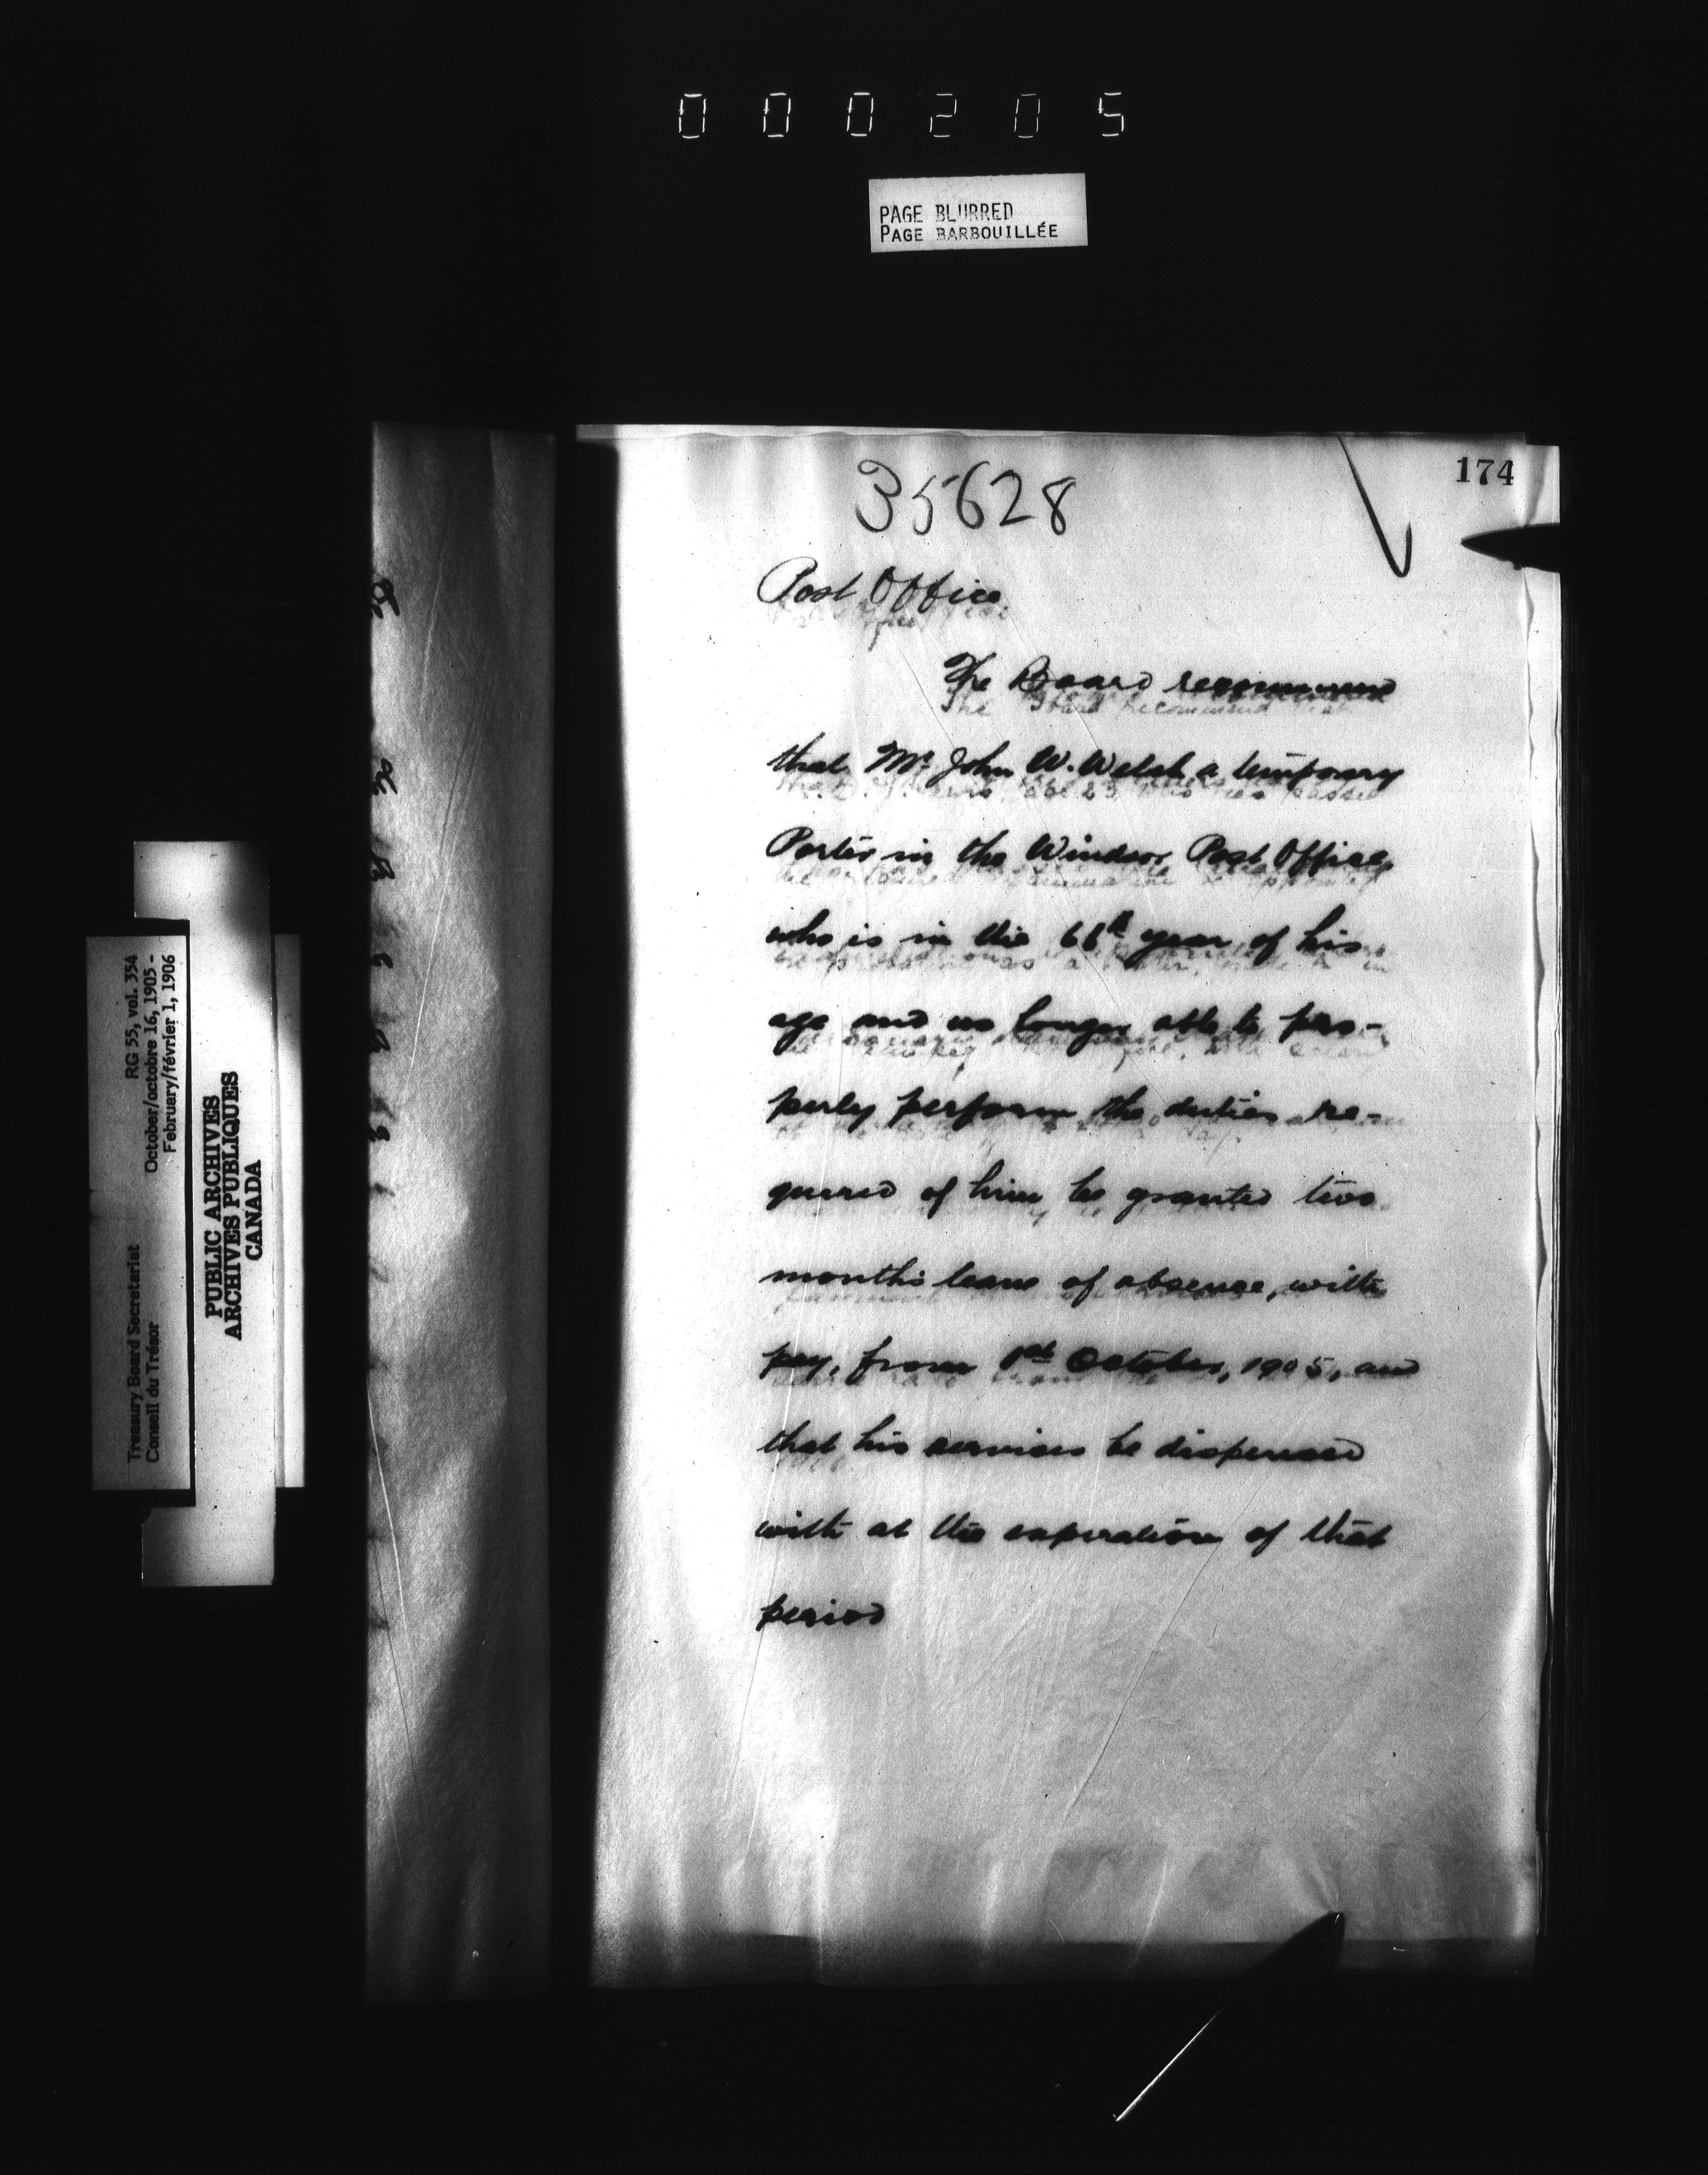 000205
PAGE BLURRED
PAGE BARBOUILLÉE
174
35628
Post Office
The Board recommend
that Mr John W. Welsh a temporary
Porter in the Windsor Post Office,
who is in the 66th year of his
age and no longer able to pro-
perly perform the duties re-
quired of him be granted two
months leave of absence, with
pay, from 1st October, 1905, and
that his services be dispensed
with at the expiration of that
period
Treasury Board Secretariat RG 55, vol. 354
Conseil du Trésor October/octobre 16, 1905 -
February/février 1, 1906
PUBLIC ARCHIVES
ARCHIVES PUBLIQUES
CANADA